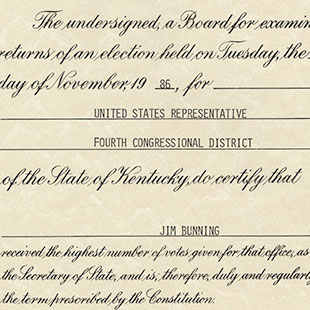 The undersigned, a Board for examin
returns of an election held on Tuesday, the
day of November, 19 86, for
UNITED STATES REPRESENTATIVE
FOURTH CONGRESSIONAL DISTRICT
of the State of Kentucky, do certify that
JIM BUNNING
received the highest number of votes given for that office, as
the Secretary of State, and is, therefore, duly and regularly
the term prescribed by the Constitution.